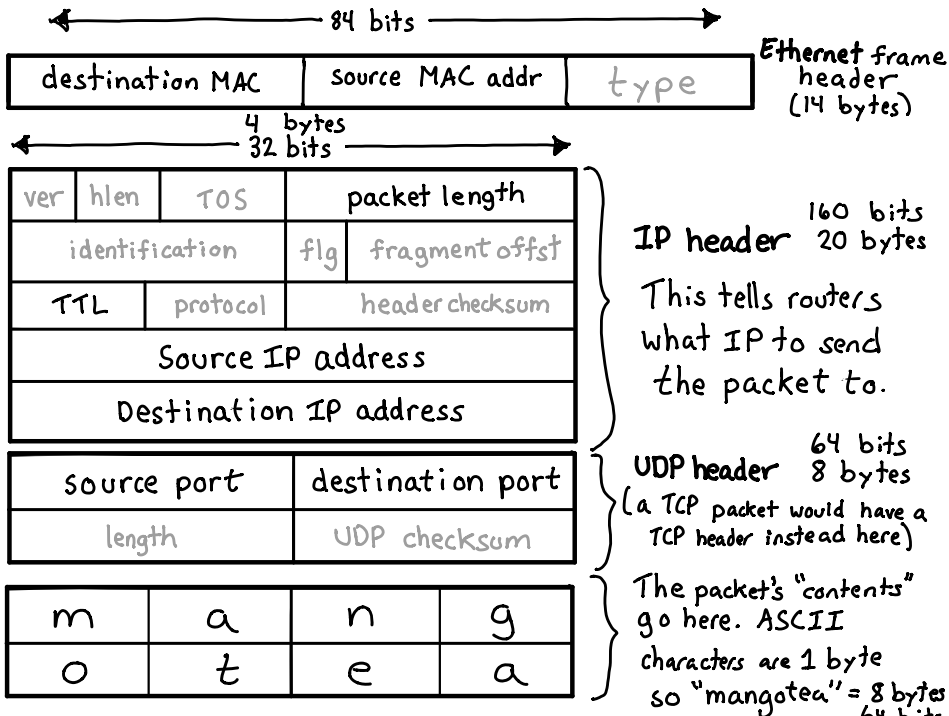 84 bits
destination MAC source MAC addr type
Ethernet frame
header
(14 bytes)
4 bytes
32 bits
ver hlen TOS packet length
identification flg fragment offst
TTL protocol header checksum
Source IP address
Destination IP address
IP header 160 bits
20 bytes
This tells routers
what IP to send
the packet to.
source port destination port
length UDP checksum
UDP header 64 bits
8 bytes
(a TCP packet would have a
TCP header instead here)
m a n g
o t e a
The packet's "contents"
go here. ASCII
characters are 1 byte
so "mangotea" = 8 bytes
64 bits